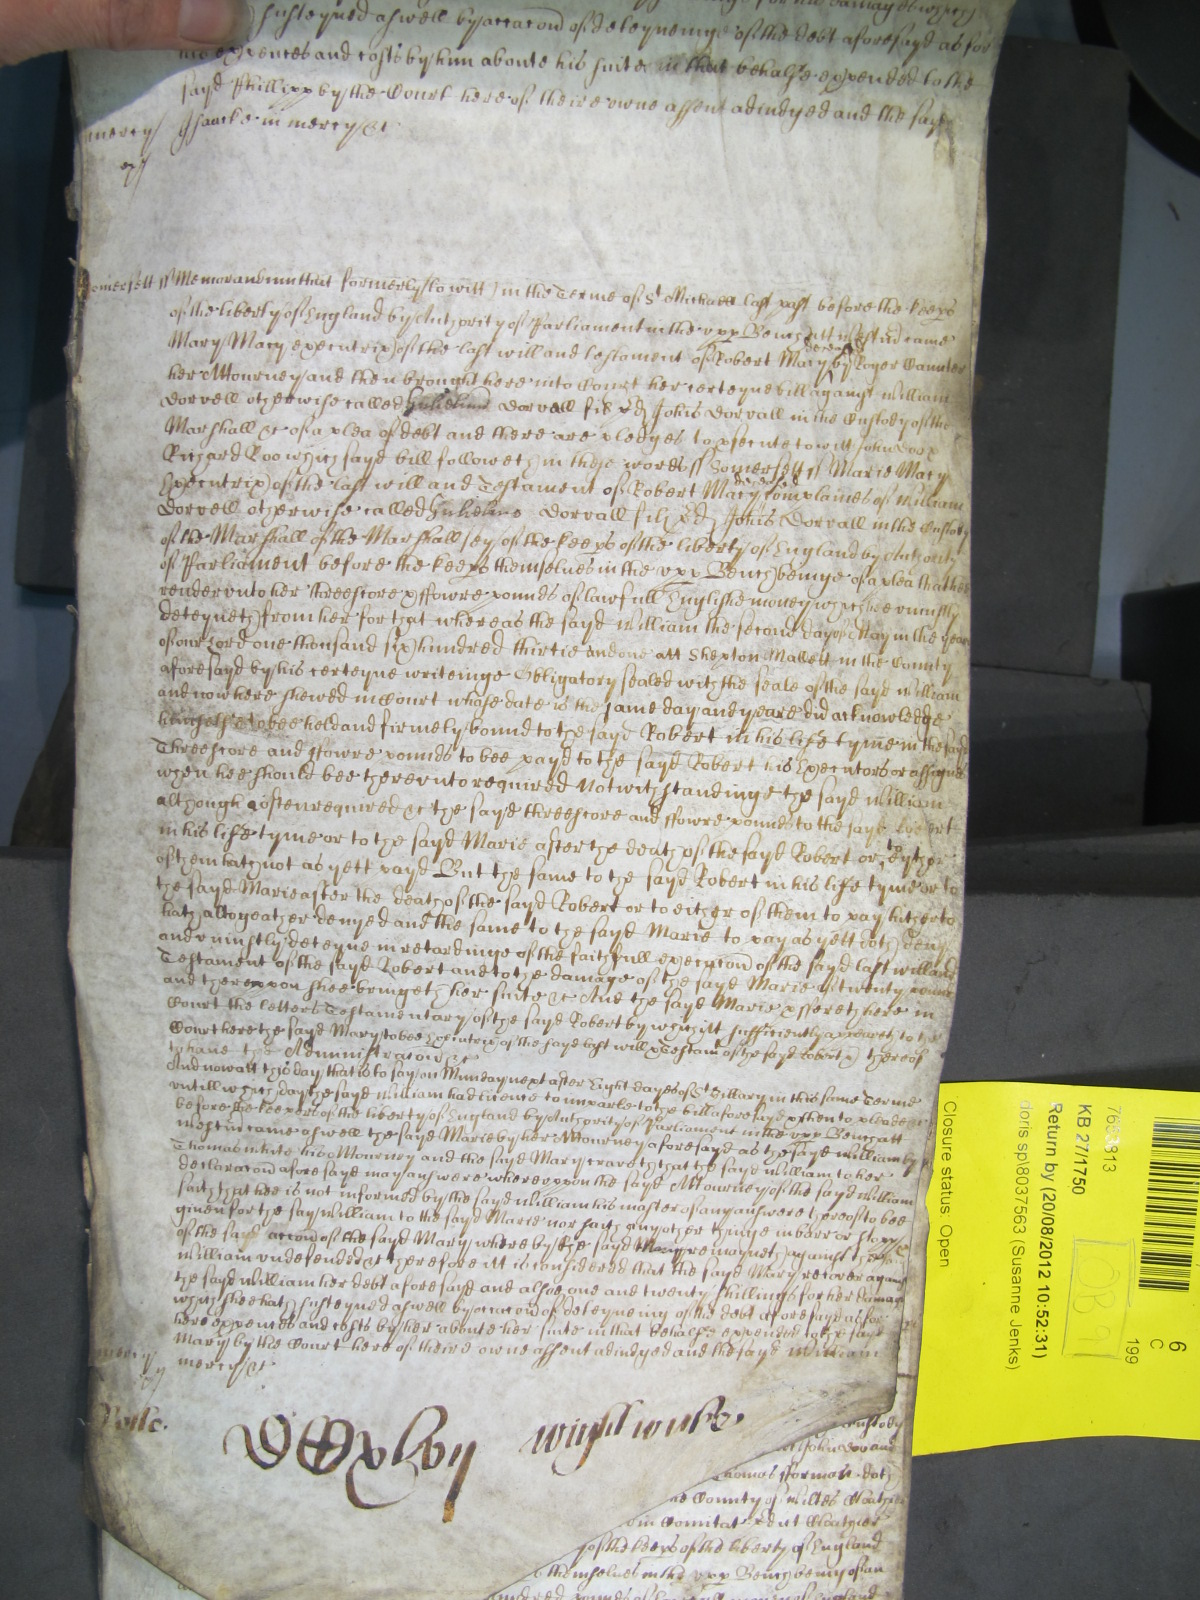 susteyned aswell by occacon of deteyneinge of the debt aforesayd as for
his expences and costs by him aboute his suite in that behalfe expended to the
sayd Phillipp by the Court here of theire owne assent adiudged and the sayd
mercy Isaacke in mercy &c
Somersett ss Memorandum that formerly (to witt) in the Terme of St Michaell last past before the keeps
of the liberty of England by Authority of Parliament in the upp Bench att westmr came
Mary Macy executrix of the last will and testament of Robert Macy deceased by Roger
her Attourney and then brought here into Court her certeyne bill against William
Dorvell otherwise called Dorvall fil Johis Dorvall in the Custody of the
Marshall &c of a plea of debt and there are pledges to psecute to witt John Doo
Richard Roo which sayd bill followeth in these words ss Somersett ss Marie Macy
Executrix of the last will and Testament of Robert Macy deceased complaines of William
Dorvell otherwise called Dorvall filj Johis Dorvall in the Custody
of the Marshall of the Marshallsey of the keeps of the liberty of England by Authority
of Parliament before the keeps themselves in the upp Bench beinge of a plea that hee
render unto her threescore & ffowre pounds of lawfull English money which hee uniustly
deteyneth from her for that whereas the sayd William the second day of May in the yeare
of our Lord one thousand six hundred thirtie and one att Shepton Mallett in the County
aforesayd by his certeyne writeinge Obligatory sealed with the seale of the sayd William
and now here shewed in Court whose date is the same day and yeare did acknowledge
himselfe to bee held and firmely bound to the sayd Robert in his life tyme in the sayd
Threescore and ffowre pounds to bee payd to the sayd Robert his Executors or assignes
when hee should bee thereunto required Notwithstandinge the sayd William
although often required &c the sayd threescore and ffowre pounds to the sayd Robert
in his life tyme or to the sayd Marie after the death of the sayd Robert or to eyther
of them hath not as yett payd But the same to the sayd Robert in his life tyme or to
the sayd Marie after the death of the sayd Robert or to either of them to pay hitherto
hath altogeather denyed and the same to the sayd Marie to pay as yett doth deny
and uniustly deteyne in retardinge of the faithfull execucon of the sayd last will and
Testament of the sayd Robert and to the damage of the sayd Marie of twenty pounds
and thereupon shee bringeth her suite &c And the sayd Marie offereth here in
Court the letters Testamentary of the sayd Robert by which itt sufficiently appeareth to the
Court here the sayd Mary to bee Executrix of the sayd last will & Testam of the sayd Robert & thereof
to have the Administracon &c
And now att this day that is to say on Munday next after Eight dayes of St Hillary in this same Terme
untill which day the sayd William had licence to imparle to the bill aforesayd & then to pleade
before the keepers of the liberty of England by Authority of Parliament in the upp Bench att
westmr came aswell the sayd Marie by her Attourney aforesayd as the sayd William by
Thomas White his Attourney and the sayd Mary craveth that the sayd William to her
declaracon aforesayd may answere whereuppon the sayd Attourney of the sayd William
saith that hee is not informed by the sayd William his master of any answere thereof to bee
given for the sayd William to the sayd Marie nor saith any other thinge in barr or stopp
of the sayd accon of the sayd Mary whereby the sayd Mary remayneth against the sayd
William undefended &c therefore itt is considered that the sayd Mary recover against
the sayd William her debt aforesayd and alsoe one and twenty shillings for her damages
which shee hath susteyned aswell by occacon of deteyneing of the debt aforesayd as for
her expences and costs by her aboute her suite in that behalfe expended to the sayd
Mary by the Court here of theire owne assent adiudged and the sayd William
mercy in mercy &c
Custody
John Doo and
Thomas fforman doth
the County of Wilts Clothier
in Comitat Clothier
of the keeps of the liberty of England
themselves in the upp Bench beinge of an
hundred pounds of lawfull money of England
Closure status: Open
doris sp\8037563 (Susanne Jenks)
Return by (20/08/2012 10:52:31)
KB 27/1750
199
C
6